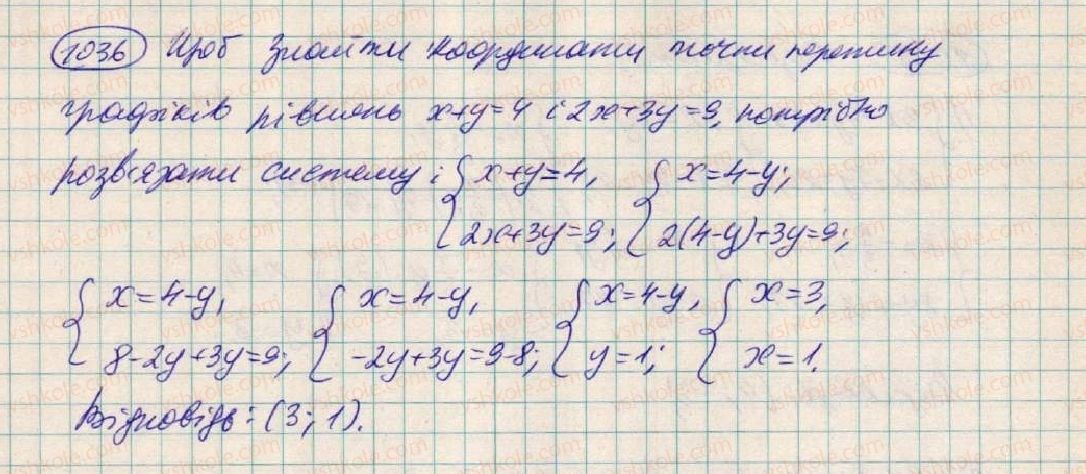 1036 Щоб знайти координати точки перетину
графіків рівнянь x+y=4 і 2x+3y=9, потрібно
розв'язати систему: { x+y=4, 2x+3y=9; { x=4-y; 2(4-y)+3y=9;
{ x=4-y, 8-2y+3y=9; { x=4-y, -2y+3y=9-8; { x=4-y, y=1; { x=3, x=1.
Відповідь: (3; 1).